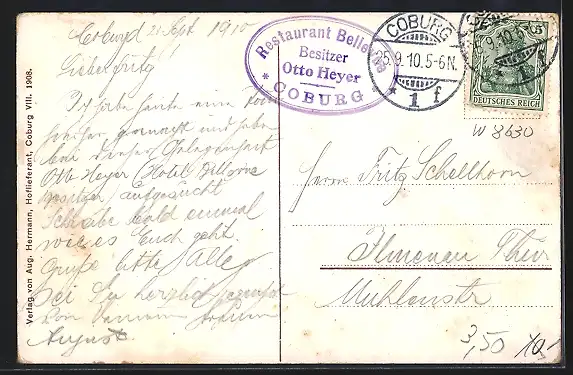 Coburg 21 Sept. 1910
Lieber Fritz!
Ich habe heute eine
gemacht und habe
bei dieser Gelegenheit
Otto Heyer (Hotel Bellevue
Besitzer) aufgesucht
Schreibe bald einmal
wie es Euch geht.
Grüße bitte Alle
sei Du herzlich gegrüßt
von Deinem
August
Verlag von Aug. Herrmann, Hoflieferant, Coburg VIII. 1908.
Restaurant Bellevue
Besitzer
Otto Heyer
* COBURG *
COBURG
25.9.10.5-6N.
* 1 f
5
DEUTSCHES REICH
W 8630
Herrn Fritz Schellhorn
Ilmenau Thür
Mühlenstr
3,50